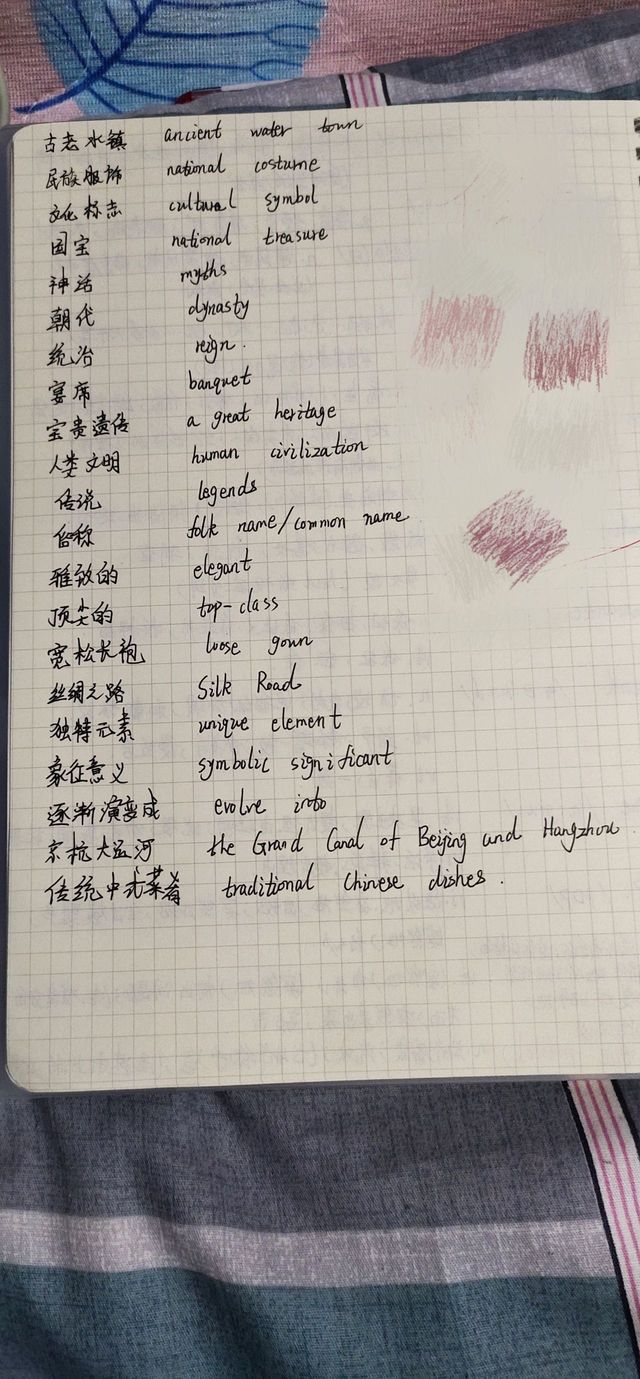 古老水镇 ancient water town
民族服饰 national costume
文化标志 cultural symbol
国宝 national treasure
神话 myths
朝代 dynasty
统治 reign.
宴席 banquet
宝贵遗传 a great heritage
人类文明 human civilization
传说 legends
俗称 folk name/common name
雅致的 elegant
顶尖的 top-class
宽松长袍 loose gown
丝绸之路 Silk Road
独特元素 unique element
象征意义 symbolic significant
逐渐演变成 evolve into
京杭大运河 the Grand Canal of Beijing and Hangzhou.
传统中式菜肴 traditional Chinese dishes.